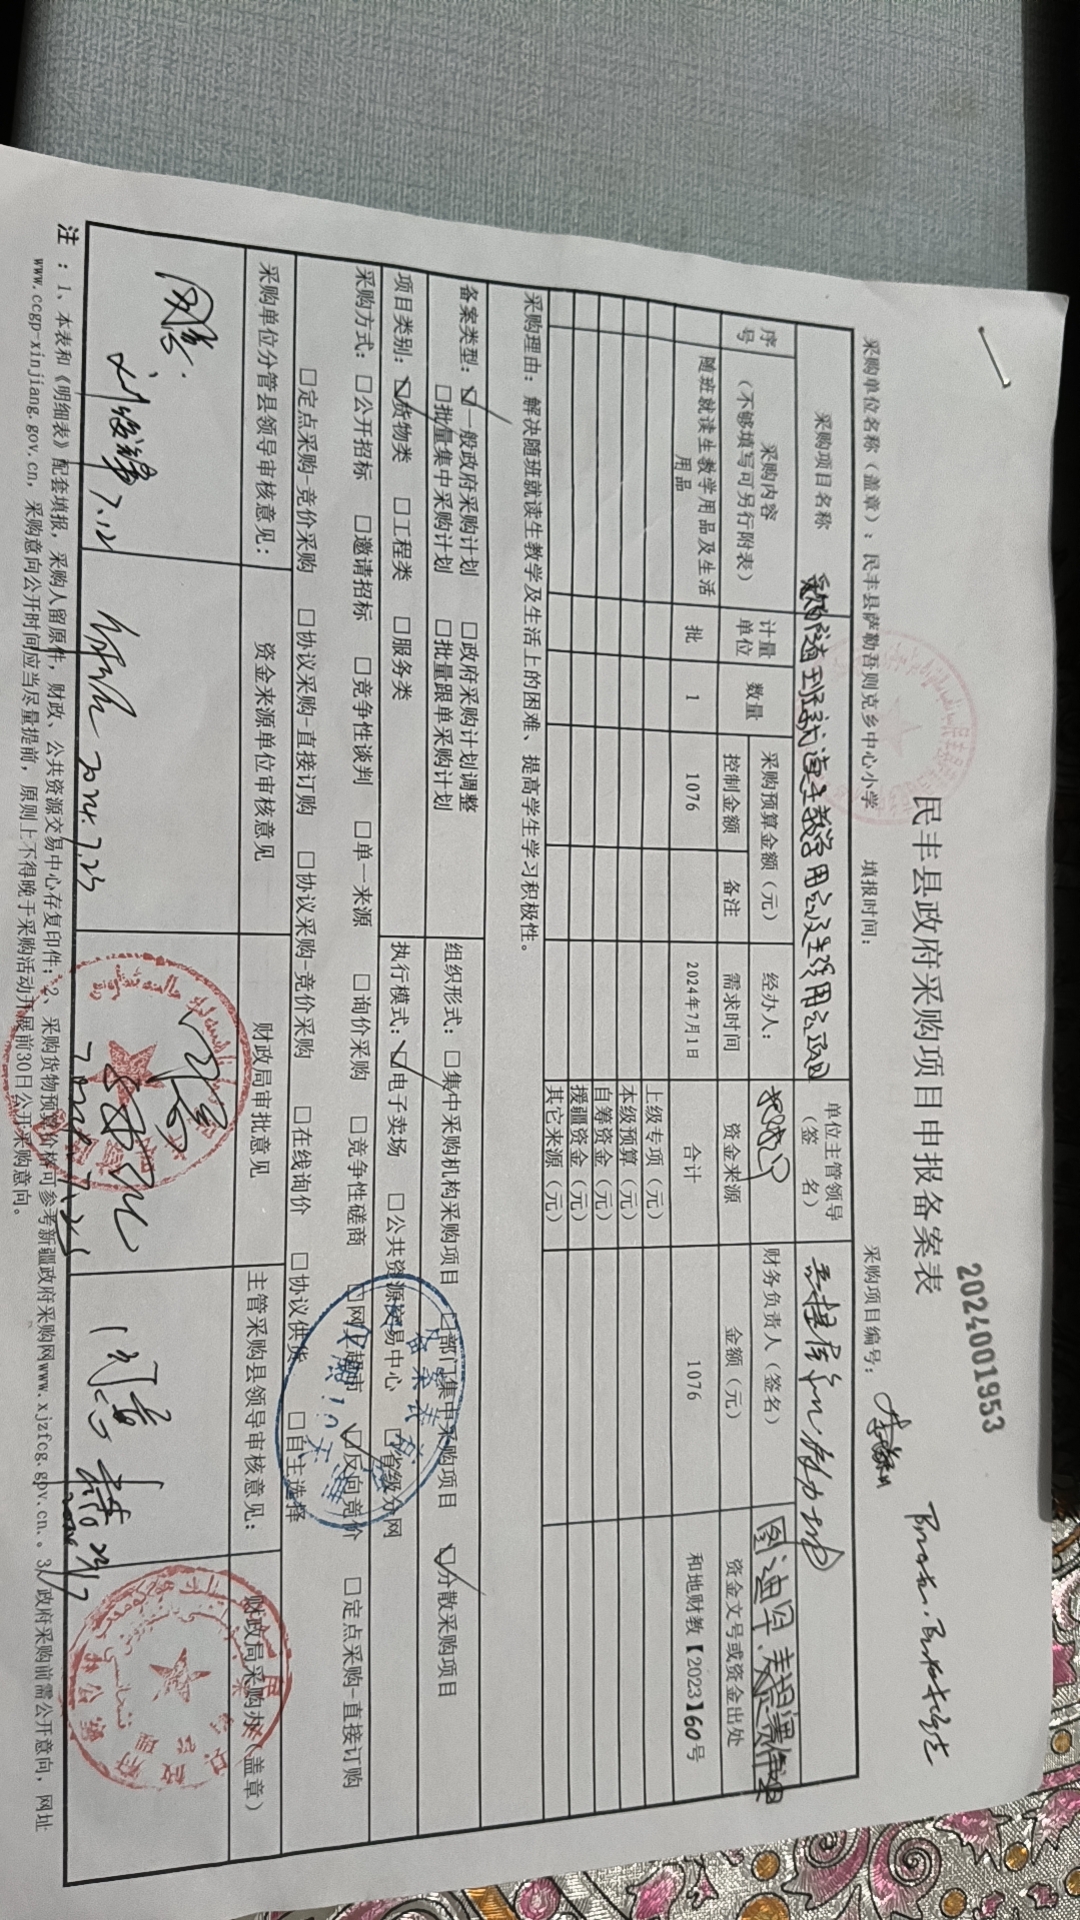 2024001953
民丰县政府采购项目申报备案表
采购单位名称（盖章）：民丰县萨勒吾则克乡中心小学 填报时间： 采购项目编号：
采购项目名称 采购随班就读生教学用品及生活用品项目 单位主管领导（签 名）
序号 采购内容（不够填写可另行附表） 计量单位 数量 采购预算金额（元） 经办人： 财务负责人（签名）
控制金额 备注 需求时间 资金来源 金额（元） 资金文号或资金出处
随班就读生教学用品及生活用品 批 1 1076 2024年7月1日 合计 1076 和地财教【2023】60号
上级专项（元）
本级预算（元）
自筹资金（元）
援疆资金（元）
其它来源（元）
采购理由：解决随班就读生教学及生活上的困难、提高学生学习积极性。
备案类型：☑一般政府采购计划 □政府采购计划调整
□批量集中采购计划 □批量跟单采购计划
组织形式：□集中采购机构采购项目 □部门集中采购项目 ☑分散采购项目
项目类别：☑货物类 □工程类 □服务类
执行模式：☑电子卖场 □公共资源交易中心 □省级分网
采购方式：□公开招标 □邀请招标 □竞争性谈判 □单一来源 □询价采购 □竞争性磋商 □网上超市 ☑反向竞价 □定点采购-直接订购
□定点采购-竞价采购 □协议采购-直接订购 □协议采购-竞价采购 □在线询价 □协议供货 □自主选择
采购单位分管县领导审核意见： 资金来源单位审核意见 财政局审批意见 主管采购县领导审核意见： 财政局采购办（盖章）
同意.
7.12
2024.7.23
同意
注：1、本表和《明细表》配套填报，采购人留原件，财政、公共资源交易中心存复印件；2、采购货物预算价格可参考新疆政府采购网www.xjzfcg.gov.cn。3、政府采购前需公开意向，网址
www.ccgp-xinjiang.gov.cn，采购意向公开时间应当尽量提前，原则上不得晚于采购活动开展前30日公开采购意向。